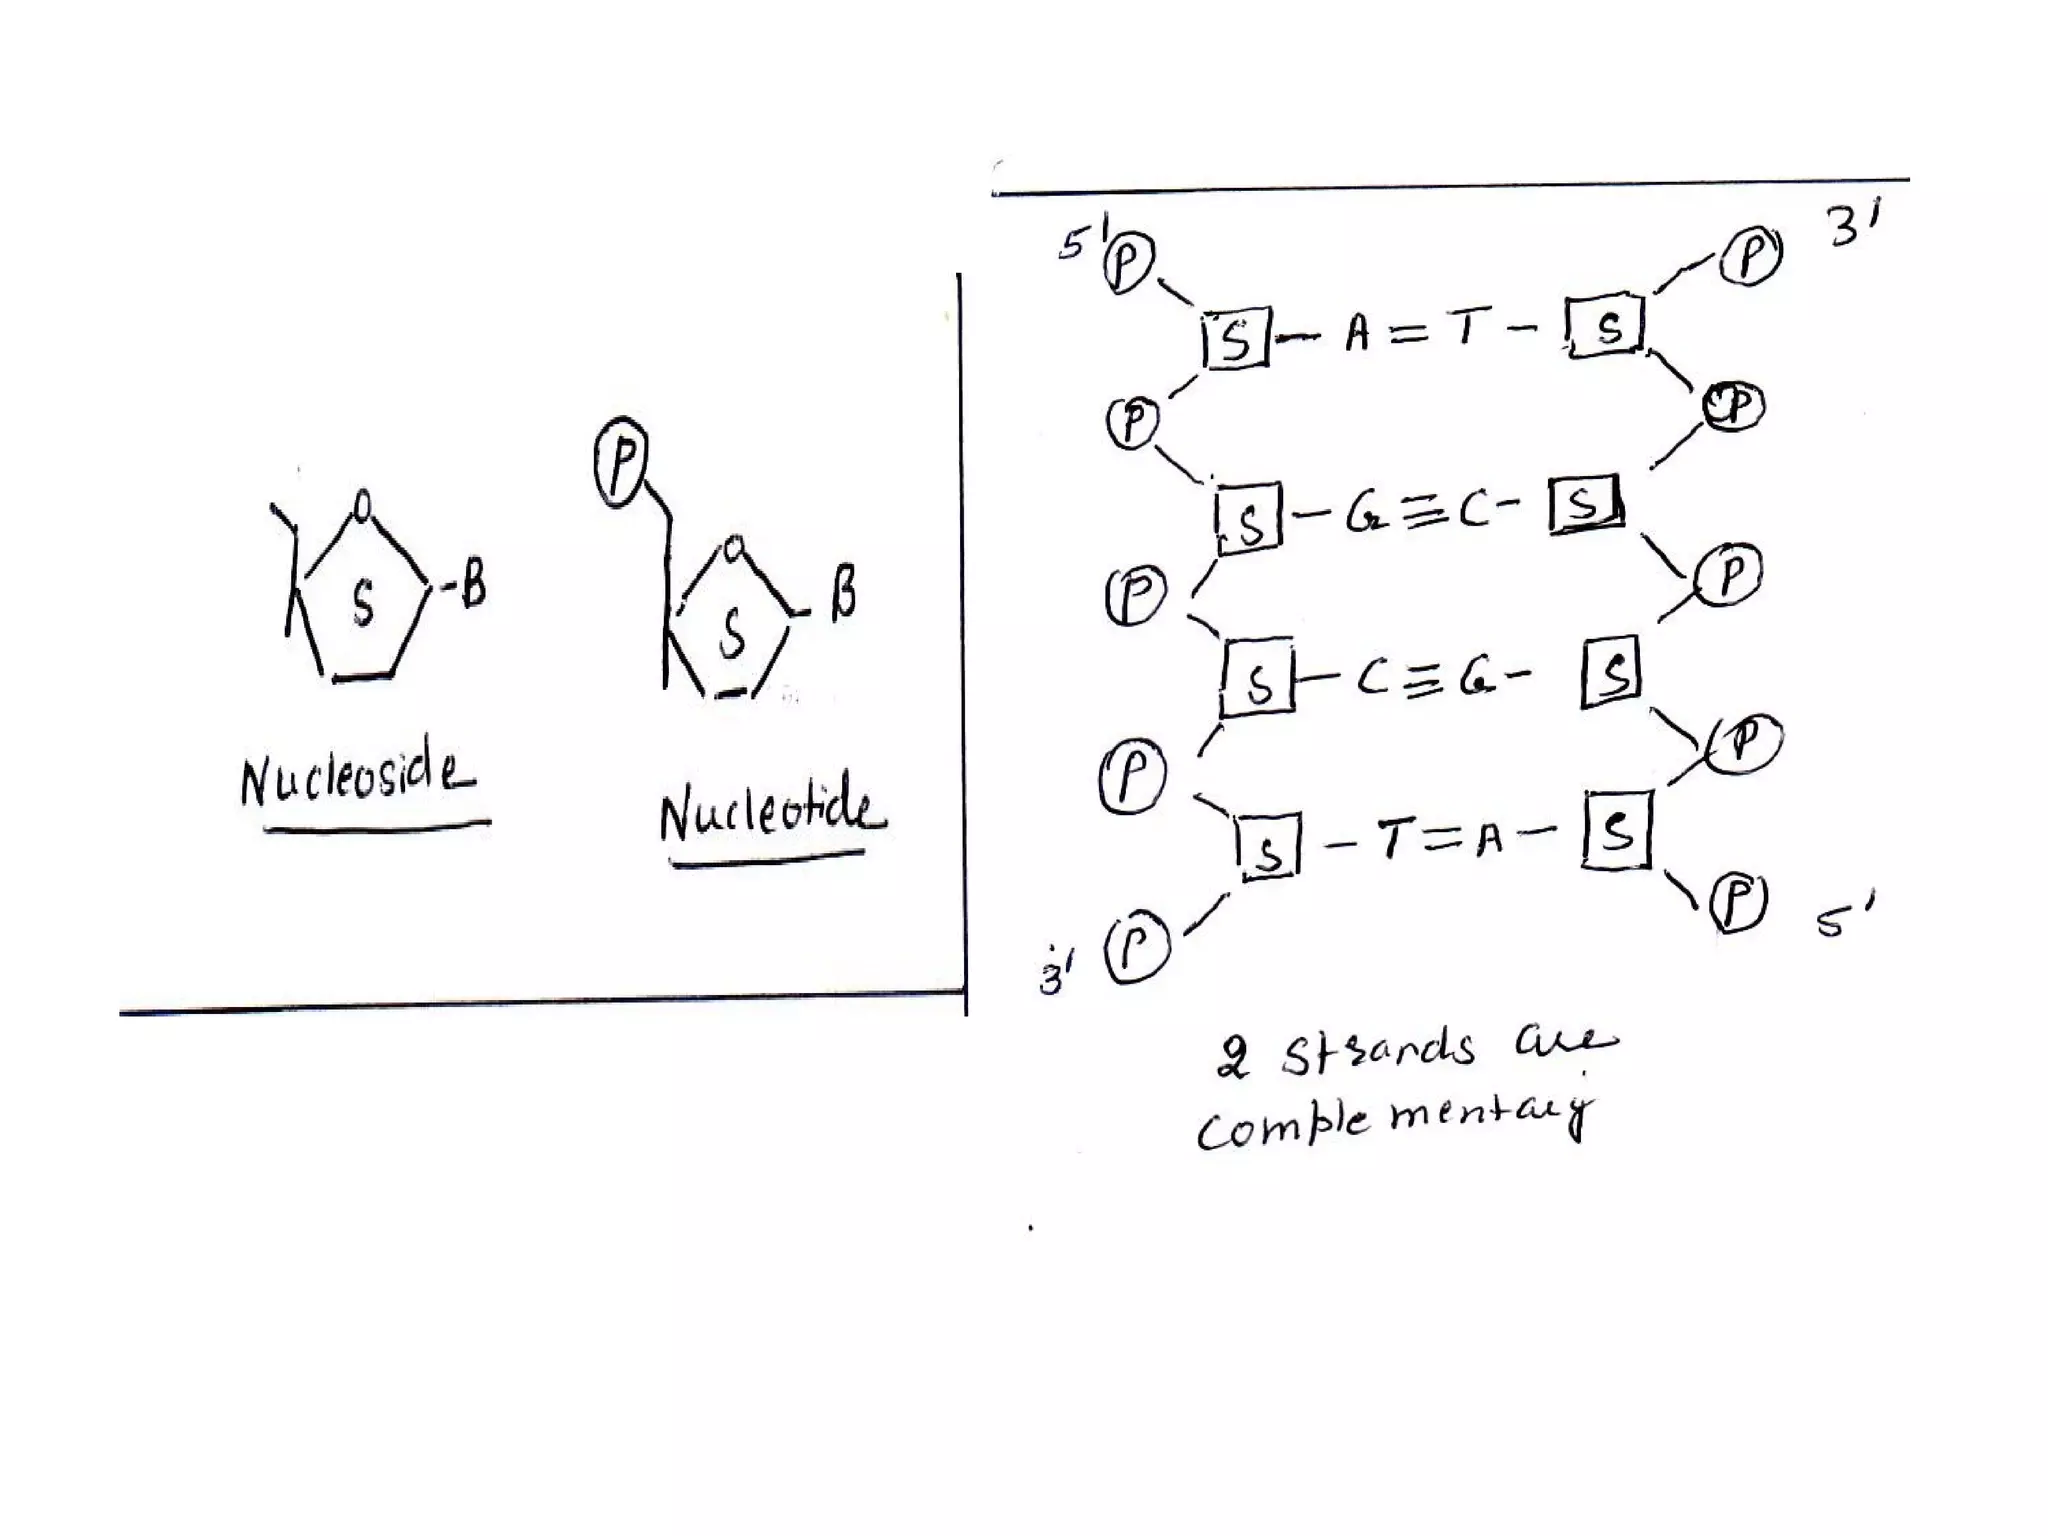 O
S -B
Nucleoside
P
O
S - B
Nucleotide
5' P P 3'
S - A = T - S
P P
S - G ≡ C - S
P P
S - C ≡ G - S
P P
S - T = A - S
3' P P 5'
2 strands are
complementary